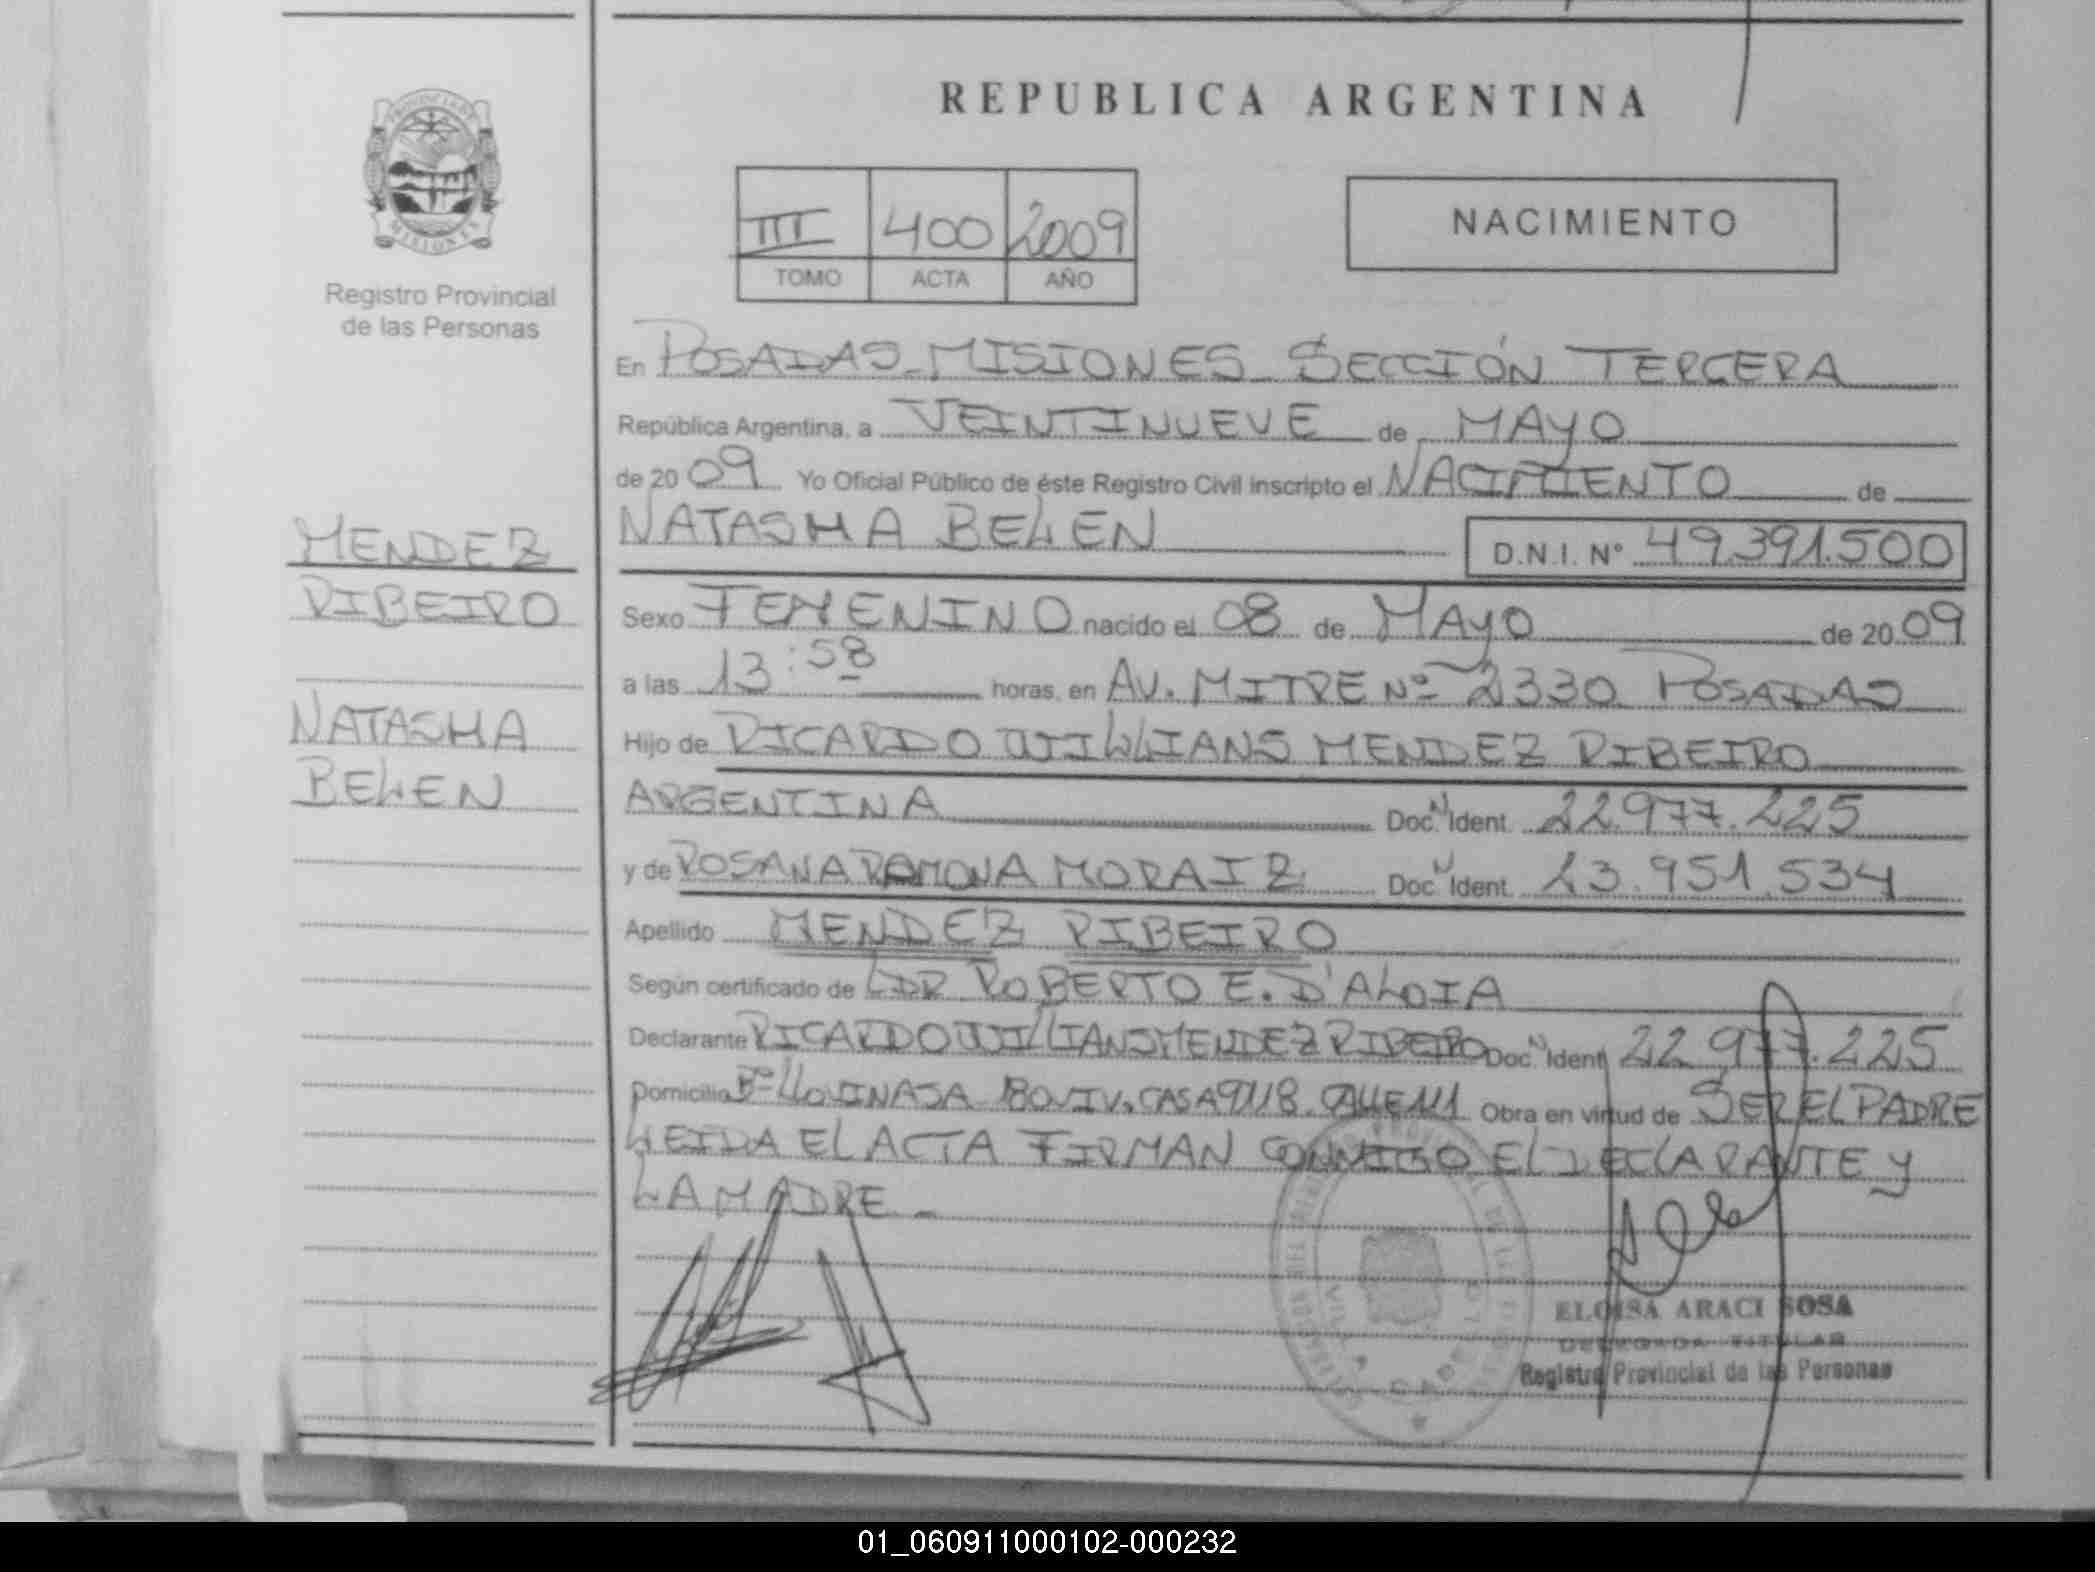 REPUBLICA ARGENTINA
PROVINCIA DE
MISIONES
Registro Provincial
de las Personas
III 400 2009
TOMO ACTA AÑO
NACIMIENTO
En POSADAS - MISIONES - SECCIÓN TERCERA
República Argentina, a VEINTINUEVE de MAYO
de 2009 Yo Oficial Público de éste Registro Civil inscripto el NACIMIENTO de
NATASHA BELEN D.N.I. Nº 49.391.500
MENDEZ
RIBEIRO
NATASHA
BELEN
Sexo FEMENINO nacido el 08 de MAYO de 2009
a las 13:58 horas, en AV. MITRE Nº 2330 POSADAS
Hijo de RICARDO WILLIANS MENDEZ RIBEIRO
ARGENTINA Doc. N Ident. 22.977.225
y de ROSANA RAMONA MORAIZ Doc. N Ident. 23.951.534
Apellido MENDEZ RIBEIRO
Según certificado de DR ROBERTO E. D'ALOIA
Declarante RICARDO WILLIANS MENDEZ RIBEIRO Doc. N Ident. 22.977.225
Domicilio Bº 180 VIV. CASA Obra en virtud de SER EL PADRE
LEIDA EL ACTA FIRMAN CONMIGO EL DECLARANTE Y
LA MADRE -
ELOISA ARACI SOSA
DELEGADA TITULAR
Registro Provincial de las Personas
01_060911000102-000232